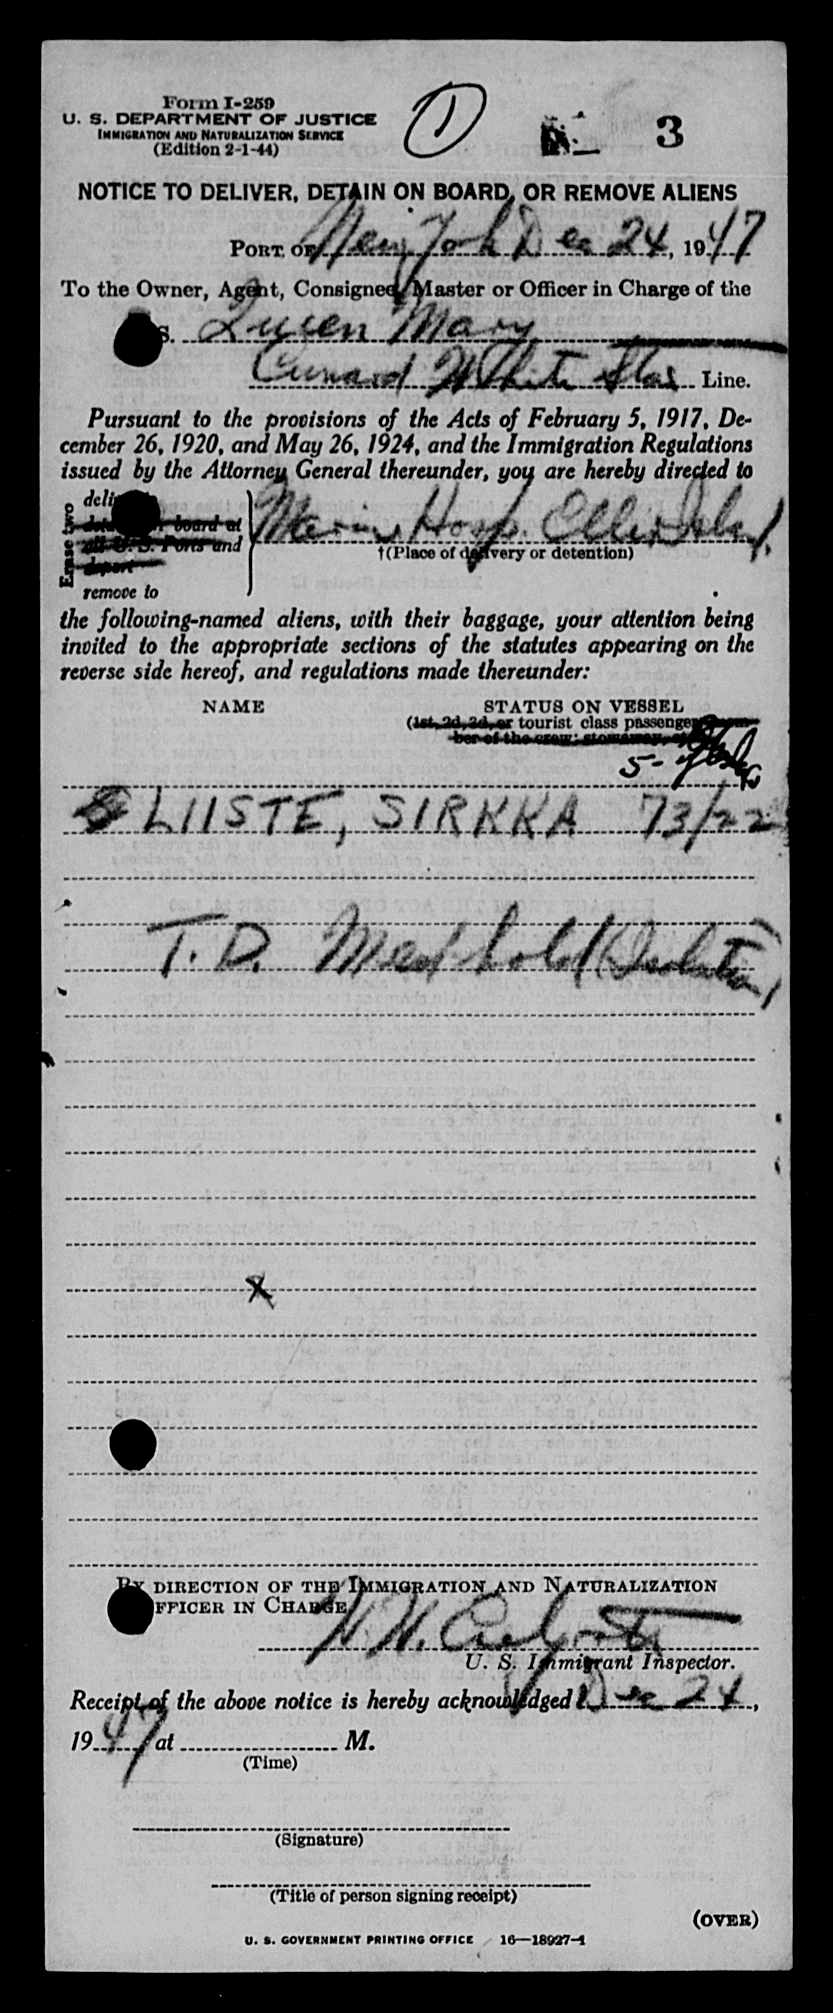 Form I-259
U. S. DEPARTMENT OF JUSTICE
IMMIGRATION AND NATURALIZATION SERVICE
(Edition 2-1-44)
1
3
NOTICE TO DELIVER, DETAIN ON BOARD, OR REMOVE ALIENS
PORT OF New York Dec 24, 1947
To the Owner, Agent, Consignee, Master or Officer in Charge of the
S. Queen Mary
Cunard White Star Line.
Pursuant to the provisions of the Acts of February 5, 1917, De-
cember 26, 1920, and May 26, 1924, and the Immigration Regulations
issued by the Attorney General thereunder, you are hereby directed to
Erase two
deliver to
detain on board at
all U. S. Ports and
deport
remove to
Marine Hosp. Ellis Island.
†(Place of delivery or detention)
the following-named aliens, with their baggage, your attention being
invited to the appropriate sections of the statutes appearing on the
reverse side hereof, and regulations made thereunder:
NAME STATUS ON VESSEL
(1st, 2d, 3d, or tourist class passenger
ber of the crew; stowaway,
5-
LIISTE, SIRKKA 73/22
T. D. Med hold (Isolation)
x
BY DIRECTION OF THE IMMIGRATION AND NATURALIZATION
OFFICER IN CHARGE
U. S. Immigrant Inspector.
Receipt of the above notice is hereby acknowledged Dec 24,
1947 at M.
(Time)
(Signature)
(Title of person signing receipt)
(OVER)
U. S. GOVERNMENT PRINTING OFFICE 16—18927-1